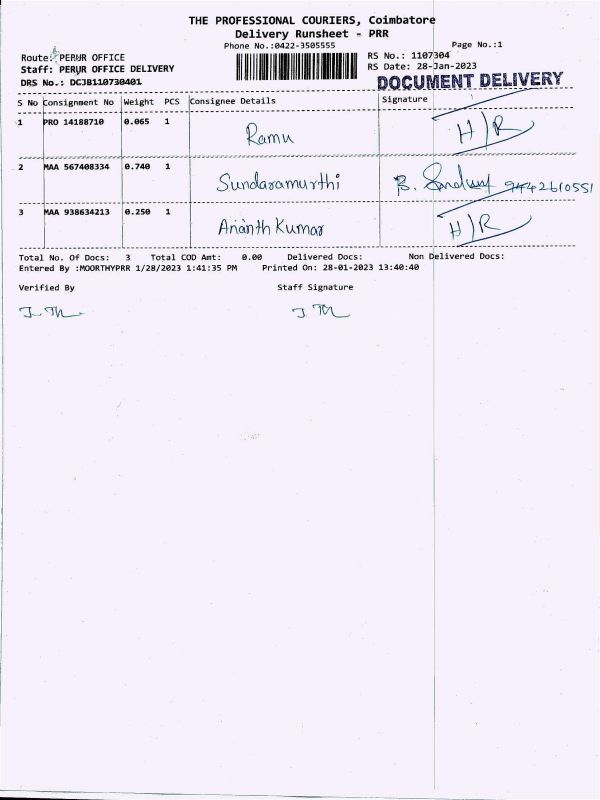 THE PROFESSIONAL COURIERS, Coimbatore
Delivery Runsheet - PRR
Phone No.:0422-3505555
Page No.:1
Route: PERUR OFFICE
RS No.: 1107304
Staff: PERUR OFFICE DELIVERY
RS Date: 28-Jan-2023
DRS No.: DCJB110730401
DOCUMENT DELIVERY
S No Consignment No Weight PCS Consignee Details Signature
1 PRO 14188710 0.065 1 Ramu H/R
2 MAA 567408334 0.740 1 Sundaramurthi B. 9442610551
3 MAA 938634213 0.250 1 Ananth Kumar H/R
Total No. Of Docs: 3 Total COD Amt: 0.00 Delivered Docs: Non Delivered Docs:
Entered By :MOORTHYPRR 1/28/2023 1:41:35 PM Printed On: 28-01-2023 13:40:40
Verified By Staff Signature